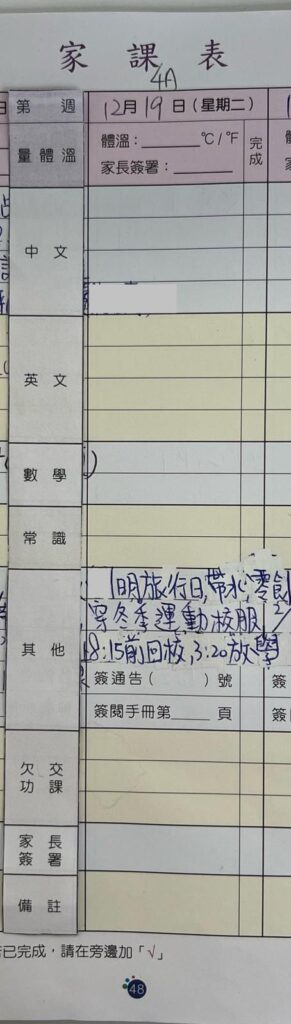 家課表
4A
第 週
12月19日(星期二)
量體溫
體溫：______°C/°F
家長簽署：______
完成
中文
英文
數學
常識
其他
1明旅行日,帶水,零食
穿冬季運動校服
8:15前回校,3:20放學
簽通告( )號
簽閱手冊第____頁
簽
簽
欠交
功課
家長
簽署
備註
已完成，請在旁邊加「√」
48